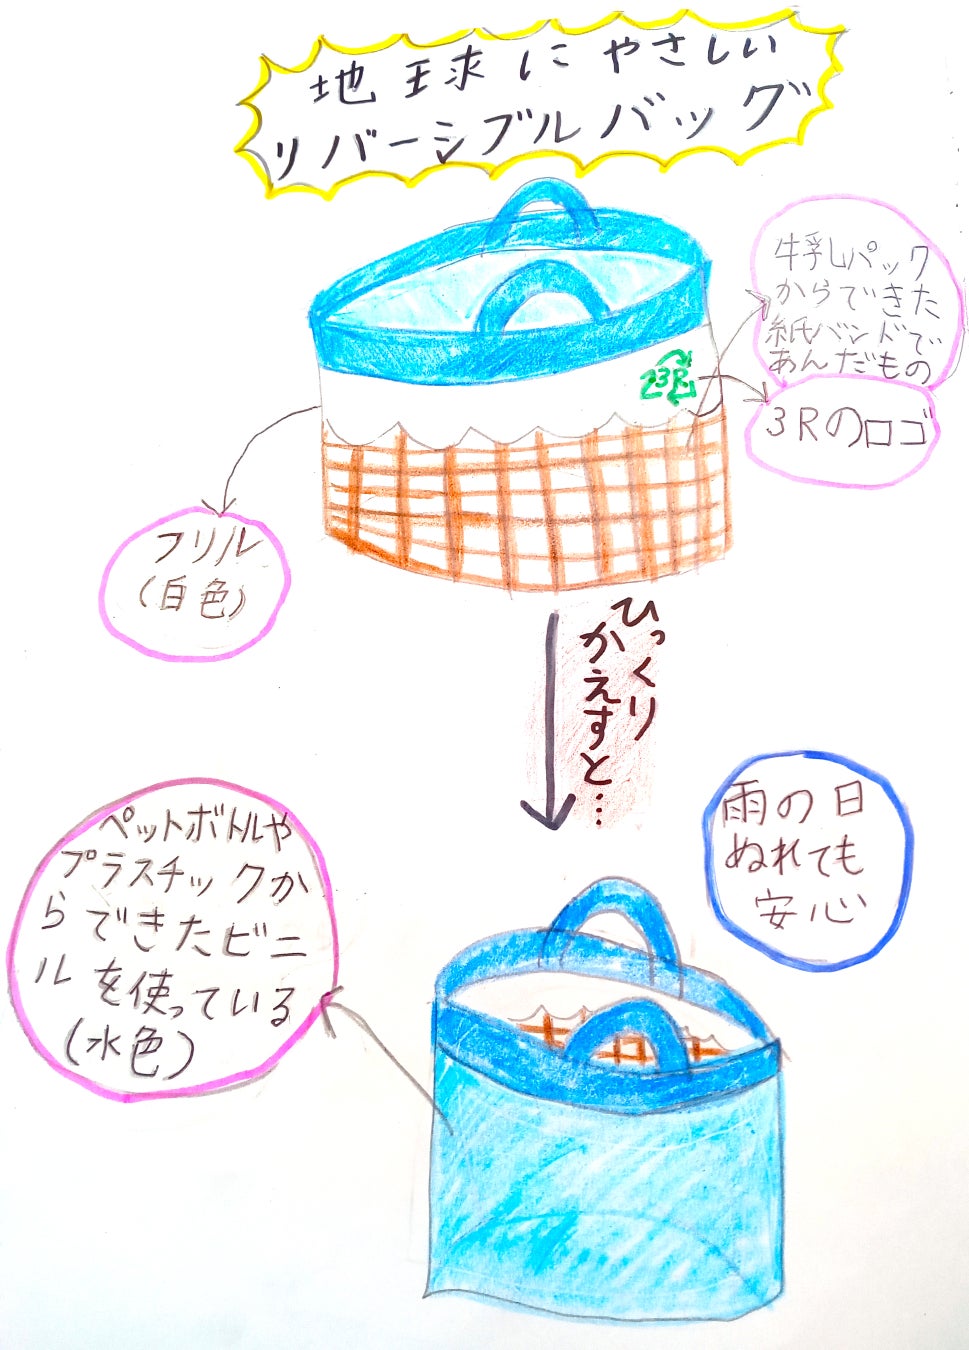 地球にやさしい
リバーシブルバッグ
牛乳パック
からできた
紙バンドで
あんだもの
3R
3Rのロゴ
フリル
(白色)
ひっくり
かえすと…
雨の日
ぬれても
安心
ペットボトルや
プラスチックか
らできたビニ
ルを使っている
(水色)